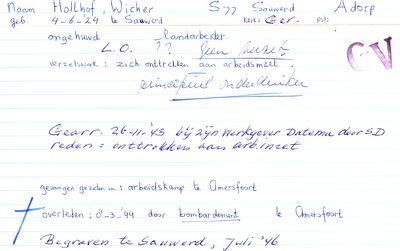 Naam Holthof, Wicher S77 Sauwerd Adorp
geb. 4-6-'24 te Sauwerd kerk: Ger. pol:
ongehuwd landarbeider.
L.O. ?? Geen verzet.
verzetswerk: zich onttrekken aan arbeidsinzet.
principieel onderduiker
CV
Gearr. 26-11-'43 bij zijn Werkgever Datema door SD
reden: onttrekken aan arb.inzet
gevangen gezeten in: arbeidskamp te Amersfoort
overleden: -3-'44 door bombardement te Amersfoort
Begraven te Sauwerd, Juli '46